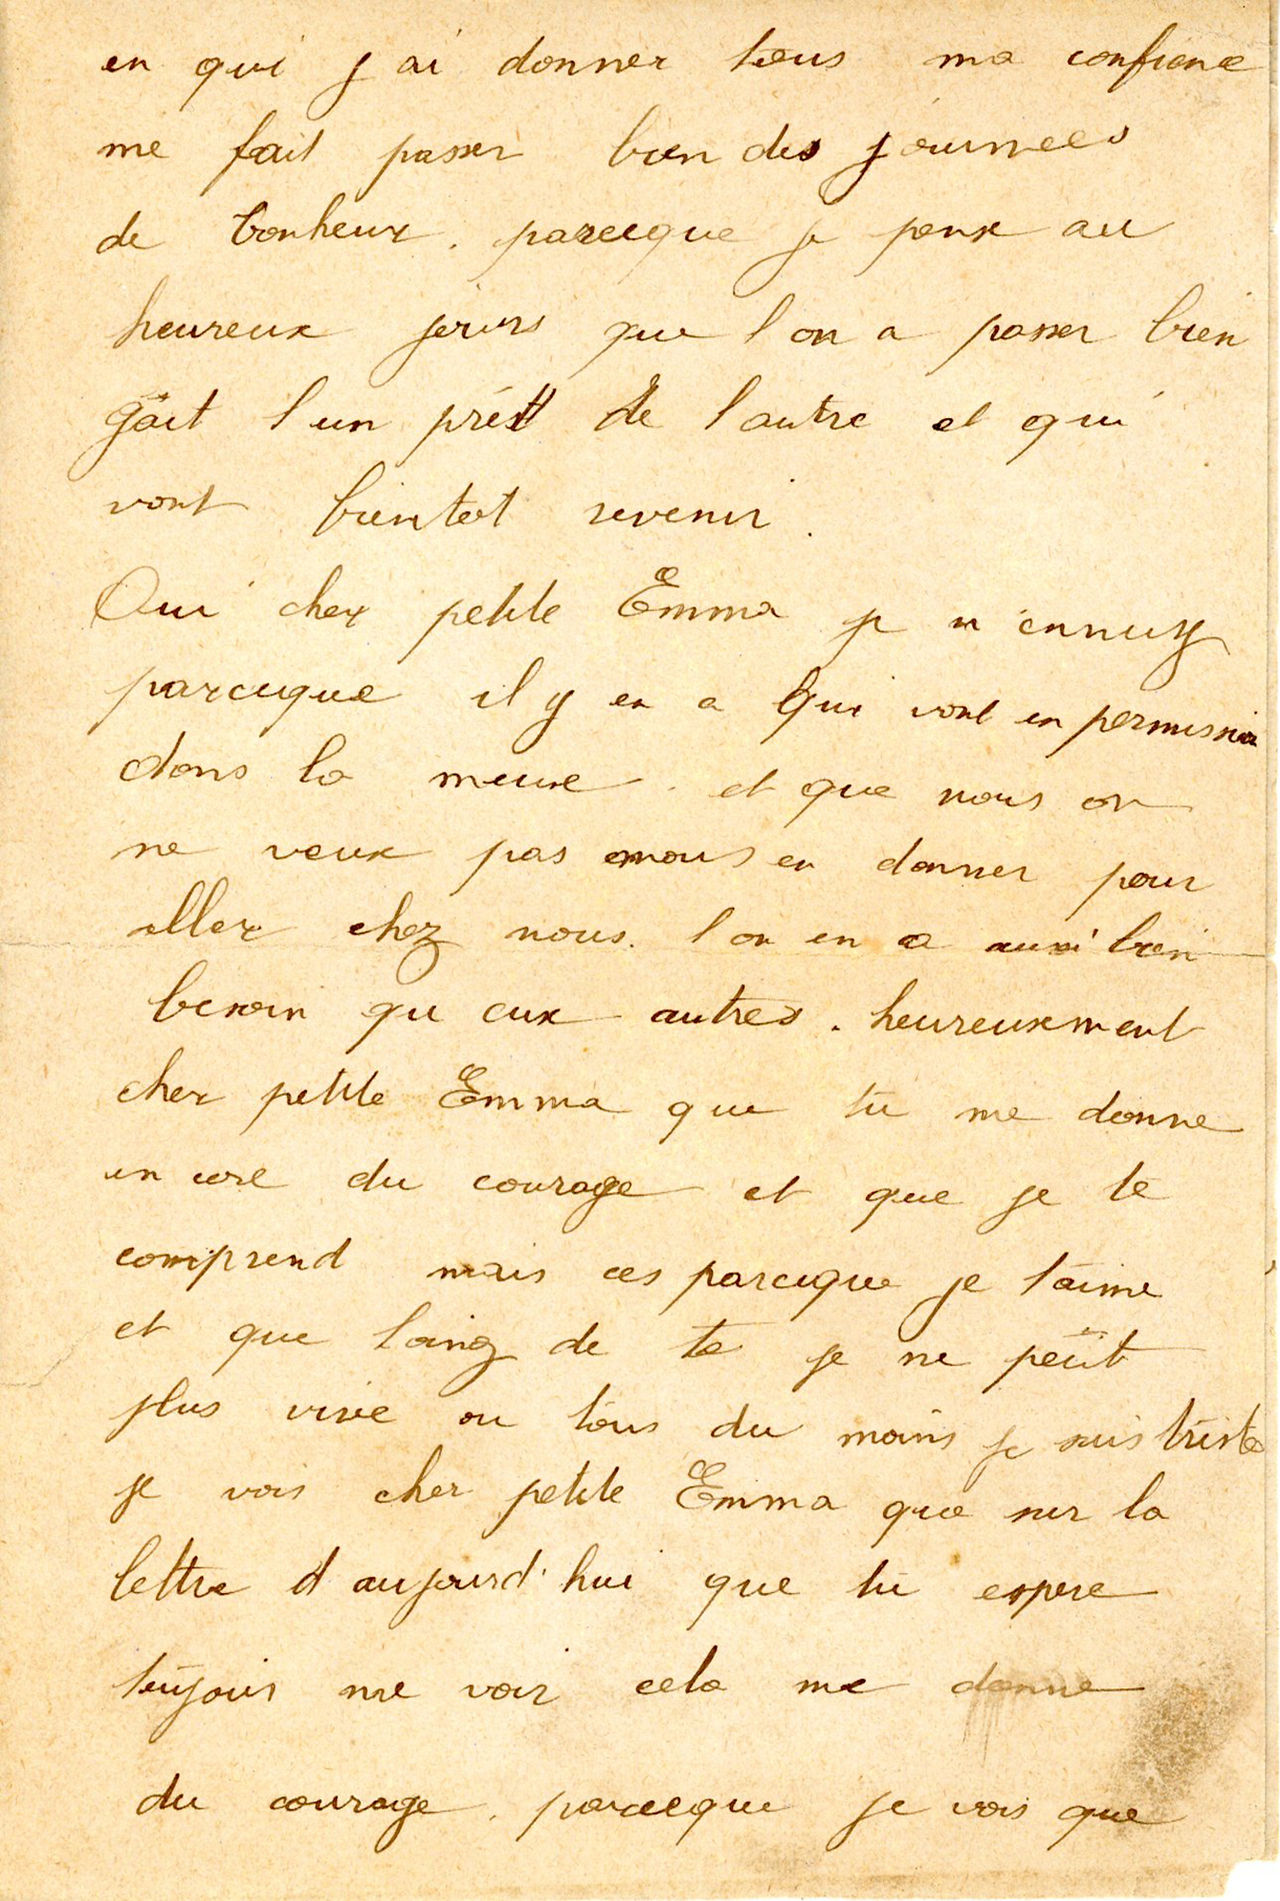 en qui j ai donner tous ma confiance
me fait passer bien des journees
de bonheur. parceque je pense au
heureux jours que l on a passer bien
gait l un prést de l autre et qui
vont bientot revenir.
Oui cher petite Emma je m ennuy
parceque il y en a qui vont en permission
dans la meuse. et que nous on
ne veux pas nous en donner pour
aller chez nous. l on en a aussi bien
besoin qu eux autres. heureusement
cher petite Emma que tu me donne
encore du courage et que je te
comprend mais ces parceque je t'aime
et que loing de te je ne peut
plus vivre ou tous du moins je suis triste
je vois cher petite Emma que sur la
lettre d aujourd'hui que tu espere
toujours me voir cela me donne
du courage. parceque je vois que